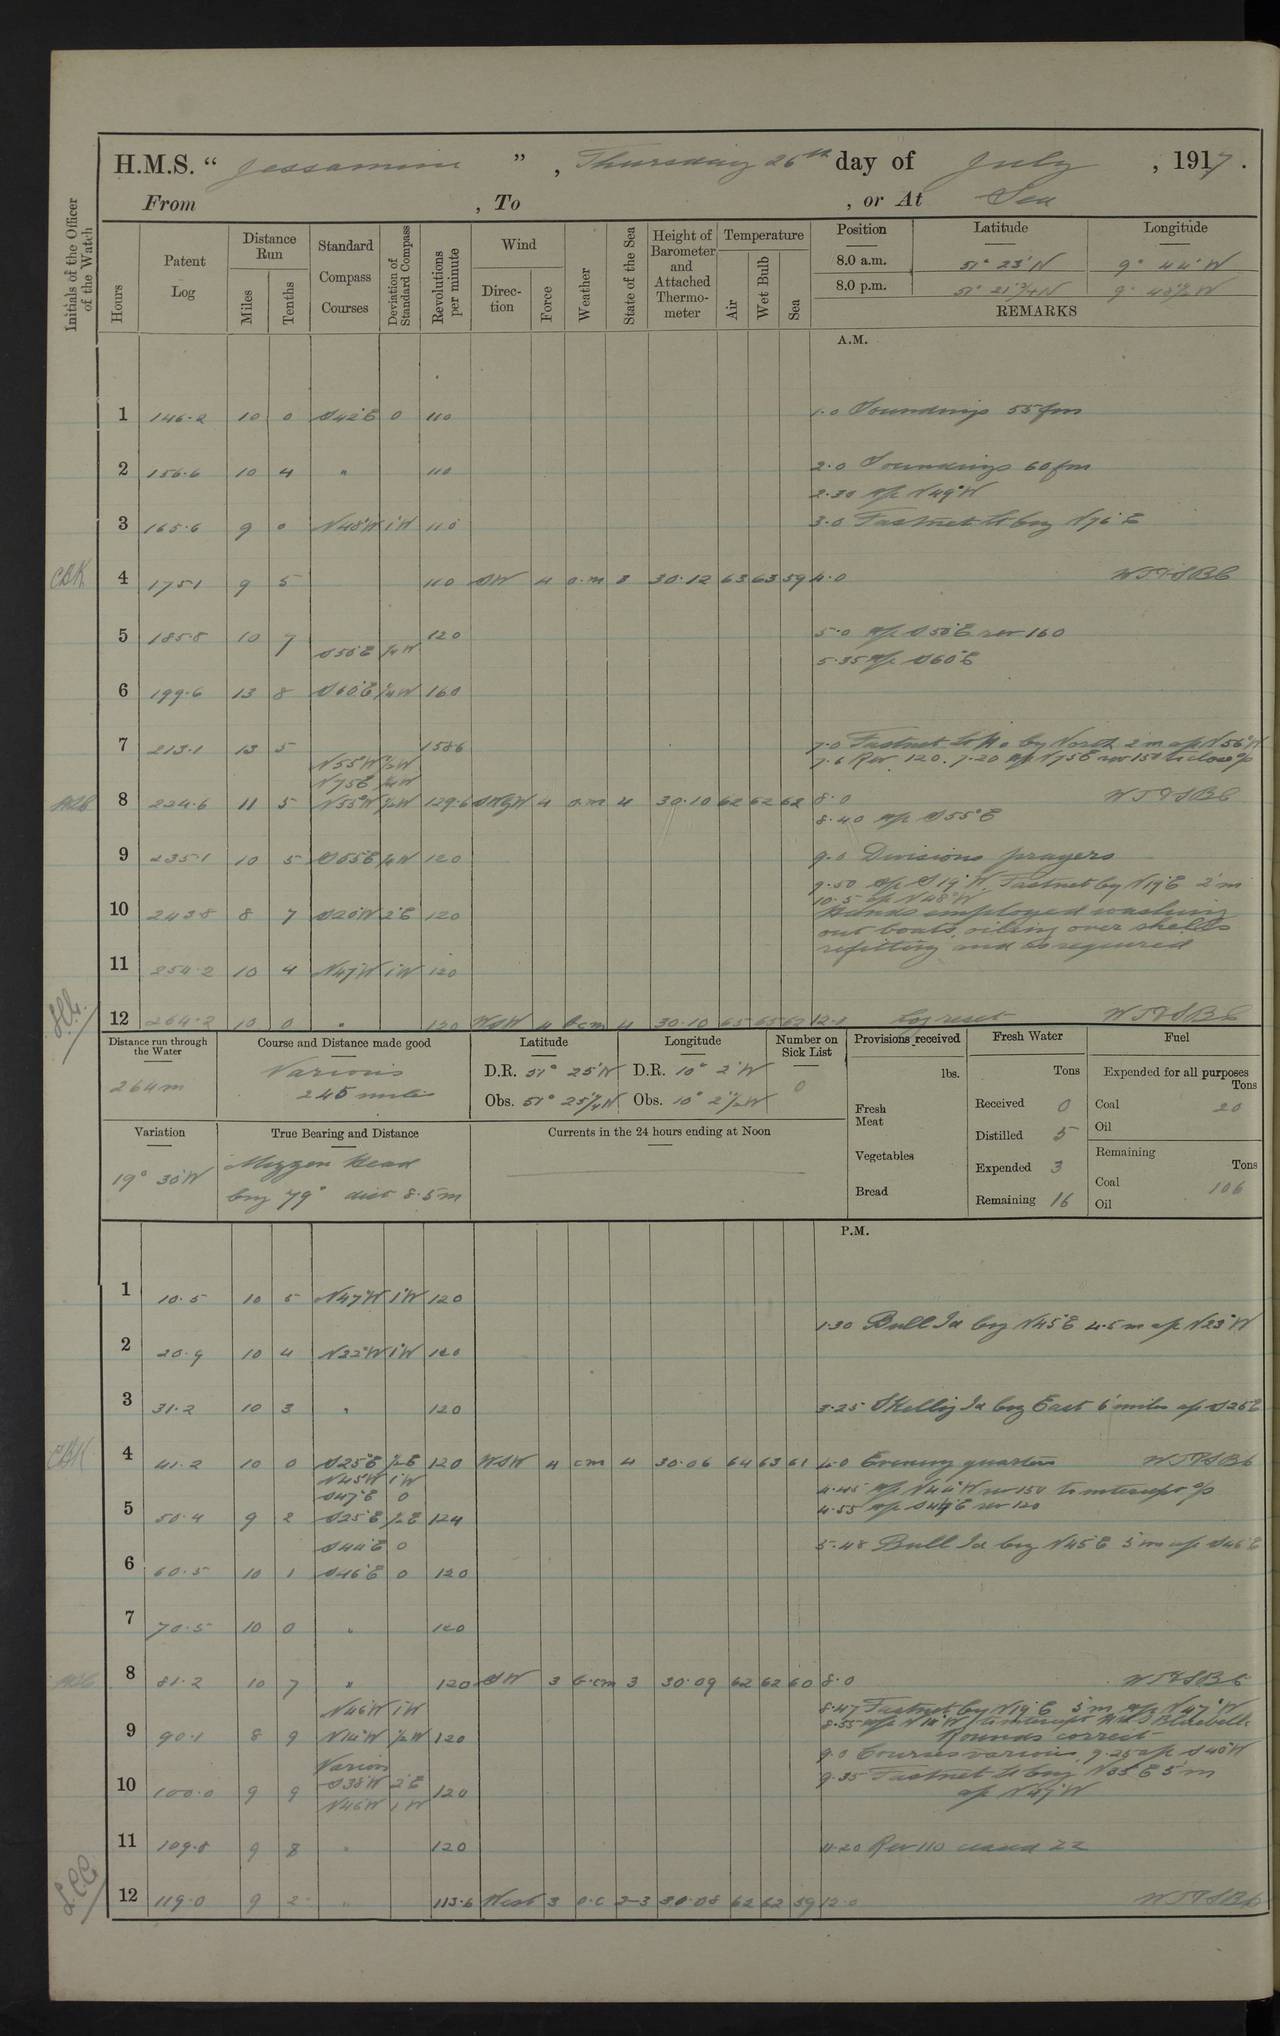 H.M.S. “ Jessamine ”, Thursday 26th day of July, 1917.
From , To , or At Sea
Initials of the Officer of the Watch
Hours
Patent Log
Distance Run
Miles
Tenths
Standard Compass Courses
Deviation of Standard Compass
Revolutions per minute
Wind
Direction
Force
Weather
State of the Sea
Height of Barometer and Attached Thermometer
Temperature
Air
Wet Bulb
Sea
Position Latitude Longitude
8.0 a.m. 51° 23'N 9° 44'W
8.0 p.m. 51° 21¾N
REMARKS
A.M.
1 146.2 10 0 S42°E 0 110 1.0 Soundings 55 fm
2 156.6 10 4 " 110 2.0 Soundings 60 fm
2.30 a/c N49°W
3 165.6 9 0 N48°W 1°W 110 3.0 Fastnet Lt brg N76°E
CBK 4 175.1 9 5 110 SW 4 o.m 3 30.12 63 63 59 4.0
5 185.8 10 7 S58°E ¼W 120 5.0 a/c S58°E rev 160
5.35 a/c S60°E
6 199.6 13 8 S60°E ¼W 160
7 213.1 13 5 158.6 7.0 Fastnet Lt Ho by North 2 m a/c N56°W
N55°W ½W 7.6 Rev 120. 7.20 a/c N75E rev 150 to close
N75E ¼W
8 224.6 11 5 N55°W ½W 129.6 SWbyW 4 o.m 4 30.10 62 62 62 8.0
8.40 a/c S55°E
9 235.1 10 5 S55E ¼W 120 9.0 Divisions prayers
9.50 a/c S19°W. Fastnet by N19°E 2'm
10.5 a/c N48°W
10 243.8 8 7 S20°W 2°E 120 Hands employed washing
out boats, oiling over shells
refitting and as required
11 254.2 10 4 N47°W 1°W 120
12 264.2 10 0 " 120 WSW 4 bcm 4 30.10 65 65 62 12.0 Log reset
Distance run through the Water
264m
Course and Distance made good
Various
245 miles
Latitude
D.R. 51° 25'N
Obs. 51° 25¼N
Longitude
D.R. 10° 2'W
Obs. 10° 2½W
Number on Sick List
0
Provisions received
lbs.
Fresh Meat
Vegetables
Bread
Fresh Water
Tons
Received 0
Distilled 5
Expended 3
Remaining 16
Fuel
Expended for all purposes
Tons
Coal 20
Oil
Remaining
Tons
Coal 106
Oil
Variation
19° 30'W
True Bearing and Distance
Mizzen Head
brg 79° dist 8.5 m
Currents in the 24 hours ending at Noon
P.M.
1 10.5 10 5 N47°W 1°W 120
1.30 Bull Id brg N45°E 4.5 m a/c N23°W
2 20.9 10 4 N22°W 1°W 120
3 31.2 10 3 " 120 3.25 Skellig Id brg East 6 miles a/c S25E
CBK 4 41.2 10 0 S25°E ½E 120 WSW 4 cm 4 30.06 64 63 61 4.0 Evening quarters
N45W 1°W 4.45 a/c N44°W rev 150 to intercept
S47°E 0 4.55 a/c S44°E rev 120
5 50.4 9 2 S25°E ½E 124
S44°E 0 5.48 Bull Id brg N45°E 5'm a/c S46°E
6 60.5 10 1 S46°E 0 120
7 70.5 10 0 " 120
8 81.2 10 7 " 120 SW 3 b.cm 3 30.09 62 62 60 8.0
N46W 1°W 8.47 Fastnet by N19°E 5'm a/c N47°W
8.55 a/c N14°W to intercept HMS Bluebell
9 90.1 8 9 N14°W ½W 120 Rounds correct
Various 9.0 Courses various. 9.25 a/c S40°W
S38°W 2°E 9.35 Fastnet Lt brg N35°E 5'm
10 100.0 9 9 N46W 1°W 120 a/c N47°W
11 109.8 9 8 " 120 11.20 Rev 110
12 119.0 9 2 " 113.6 West 3 o.c 2-3 30.08 62 62 59 12.0